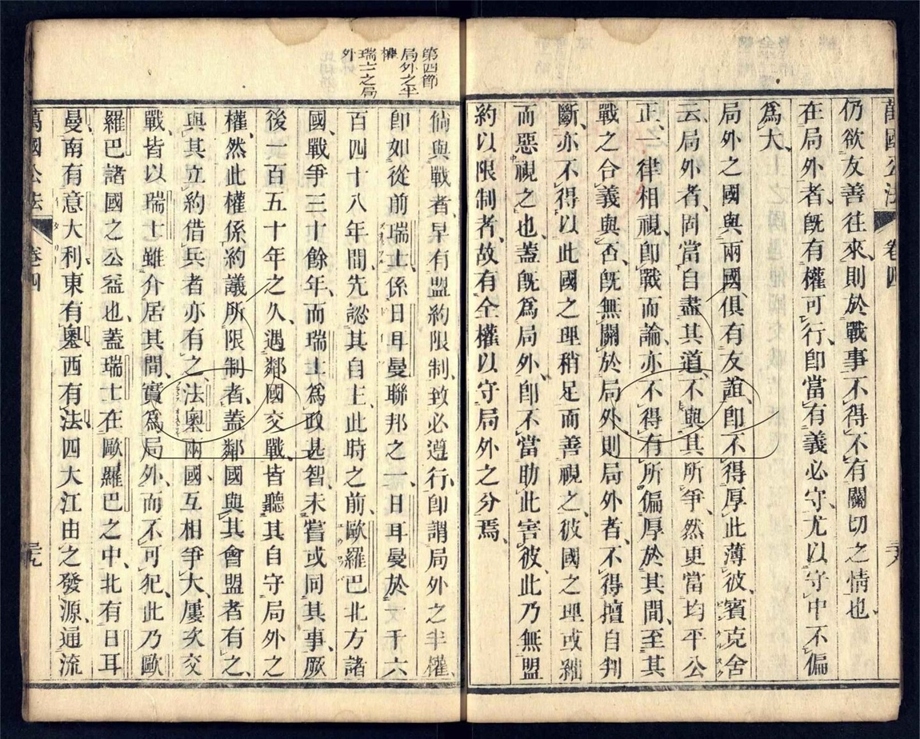 萬國公法 卷四
仍欲友善往來、則於戰事不得不有關切之情也、
在局外者、既有權可行、卽當有義必守、尤以守中不偏
爲大、
局外之國與兩國俱有友誼、卽不得厚此薄彼、賓克舍
云、局外者尚當自盡其道、不與其所爭、然更當均平公
正、一律相視、卽戰而論、亦不得有所偏厚於其間、至其
戰之合義與否、既無關於局外、則局外者、不得擅自判
斷、亦不得以此國之理稍足而善視之、彼國之理或
而惡視之也、蓋既爲局外、卽不當助此害彼、此乃無盟
約以限制者、故有全權以守局外之分焉、
第四節
局外之半
權
瑞士之局
外
倘與戰者、早有盟約限制、致必遵行、卽謂局外之半權、
卽如從前瑞士、係日耳曼聯邦之一、日耳曼於一千六
百四十八年間、先認其自主、此時之前、歐羅巴北方諸
國、戰爭三十餘年、而瑞士爲政甚智、未嘗或同其事、厥
後一百五十年之久、遇鄰國交戰、皆聽其自守局外之
權、然此權係約議所限制者、蓋鄰國與其會盟者有之、
與其立約借兵者亦有之、法奧兩國互相爭大、屢次交
戰、皆以瑞士雖介居其間、實爲局外、而不可犯、此乃歐
羅巴諸國之公益也、蓋瑞士在歐羅巴之中、北有日耳
曼、南有意大利、東有奧、西有法、四大江由之發源、通流
萬國公法 卷四